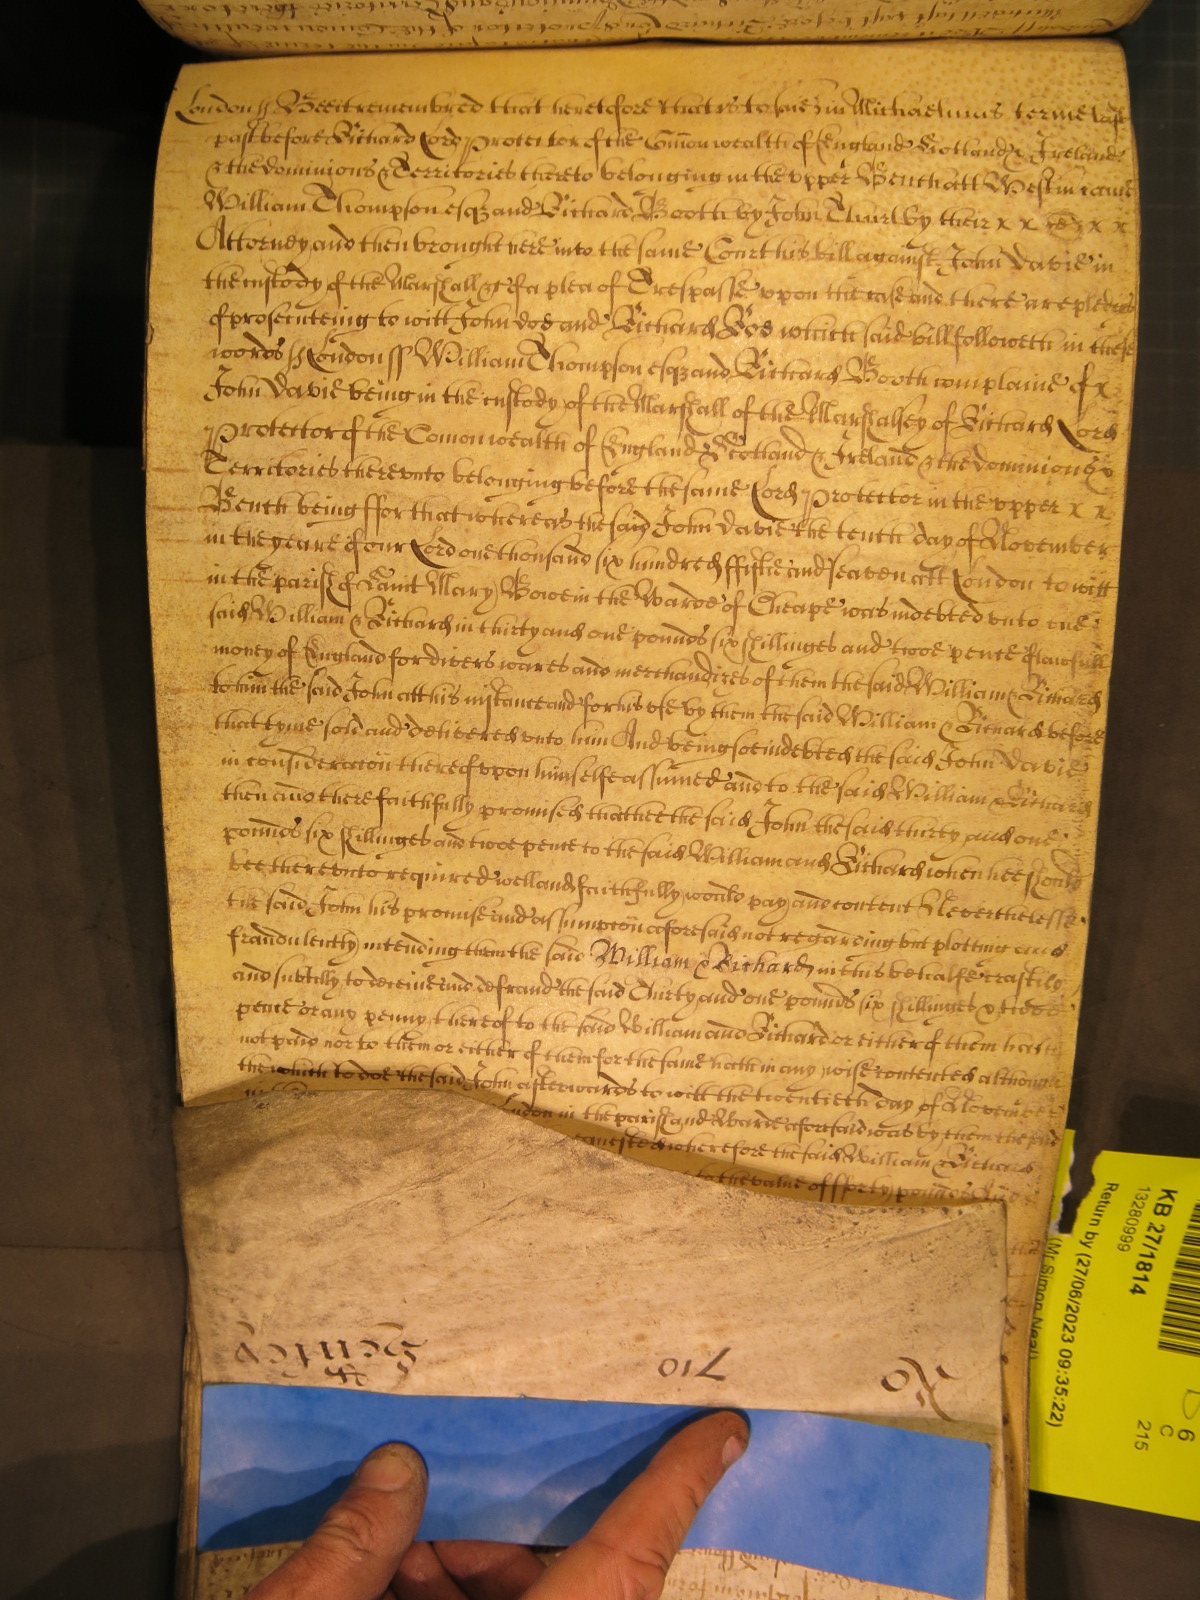 London ss Bee it remembred that heretofore that is to saie in Michaelmas terme last
past before Richard Lord Protector of the Comonwealth of England Scotland & Ireland
& the dominions & Territories thereto belonging in the upper Bench att Westm came
William Thompson esqz and Richard Booth by John Thurlby their x x x x
Attorney and then brought here into the same Court his bill against John Davie in
the custody of the Marshall &c of a plea of Trespasse upon the case and there are pledges
of prosecuteing to witt John doe and Richard Roe which said bill followeth in these
words ss London ss William Thompson esqz and Richard Booth complaine of x
John Davie being in the custody of the Marshall of the Marshalsey of Richard Lord
Protector of the Comonwealth of England Scotland & Ireland & the dominions &
Territories therevnto belonging before the same Lord Protector in the vpper x x
Bench being ffor that whereas the said John Davie the tenth day of November
in the yeare of our Lord one thousand six hundred ffiftie and seaven att London to witt
in the parish of Saint Mary Bowe in the Warde of Cheape was indebted vnto the
said William & Richard in thirty and one pounds six shillinges and twoe pence of lawfull
money of England for divers wares and merchandizes of them the said William & Richard
to him the said John att his instance and for his vse by them the said William & Richard before
that tyme sold and delivered vnto him And being soe indebted the said John Davie
in consideracion thereof vpon himselfe assumed and to the said William & Richard
then and there faithfully promised that hee the said John the said thirty and one
pounds six shillinges and twoe pence to the said William and Richard when hee should
bee therevnto required well and faithfully would pay and content Neverthelesse
the said John his promise and assumpcion aforesaid not regarding but plotting and
fraudulently intending them the said William & Richard in this behalfe craftily
and subtilly to deceive and defraud the said thirty and one pounds six shillinges & twoe
pence or any penny thereof to the said William and Richard or either of them hath
not paid nor to them or either of them for the same hath in any wise contented although
the which to doe the said John afterwards to witt the twentieth day of November
London in the parish and Warde aforesaid was by them the said
requested wherefore the said William & Richard
to the value of fforty pounds And
Ro
710
Henley
KB 27/1814
13280999
Return by (27/06/2023 09:35:22)
(Mr Simon Neal)
6
C
215